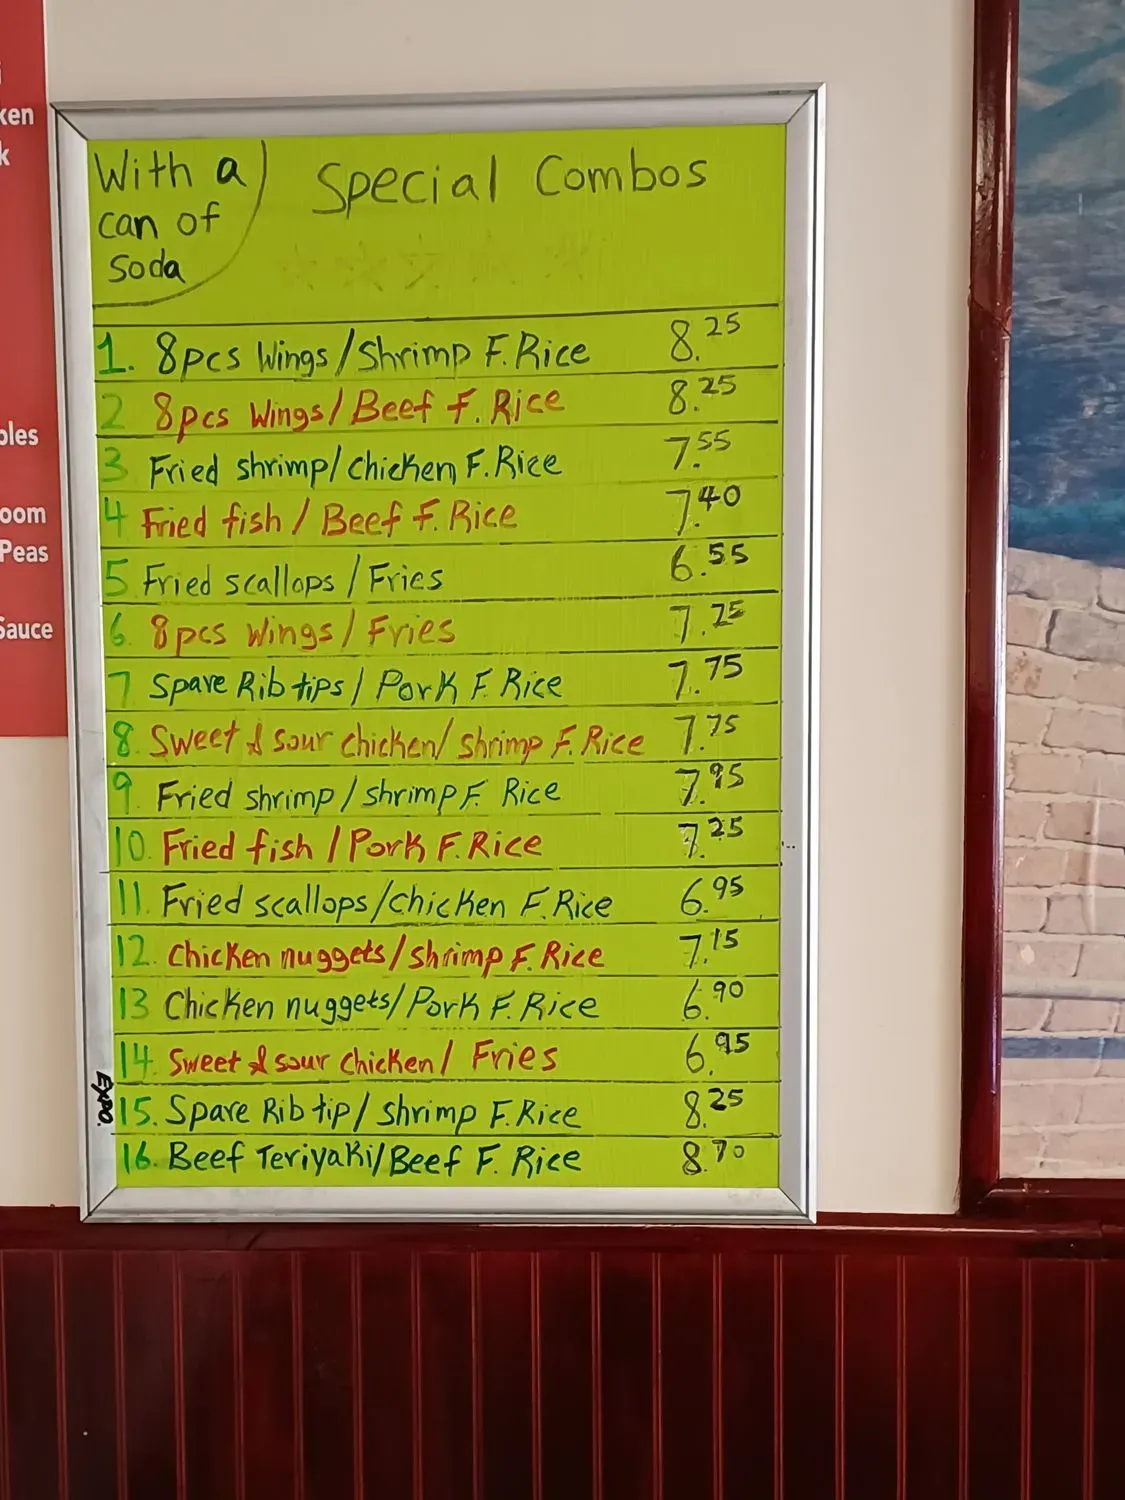 ken
k
bles
oom
Peas
Sauce
With a
can of
soda
Special Combos
1. 8pcs Wings/Shrimp F.Rice 8.25
2 8pcs Wings/Beef F. Rice 8.25
3 Fried shrimp/chicken F.Rice 7.55
4 Fried fish/Beef F. Rice 7.40
5 Fried scallops/Fries 6.55
6. 8pcs Wings/Fries 7.25
7 Spare Rib tips/Pork F. Rice 7.75
8. Sweet & sour chicken/shrimp F. Rice 7.75
9. Fried shrimp/shrimp F. Rice 7.95
10. Fried fish/Pork F. Rice 7.25
11. Fried scallops/chicken F. Rice 6.95
12. Chicken nuggets/shrimp F. Rice 7.15
13 Chicken nuggets/Pork F. Rice 6.90
14. Sweet & sour chicken/Fries 6.95
15. Spare Rib tip/shrimp F. Rice 8.25
16. Beef Teriyaki/Beef F. Rice 8.70
EXPO.